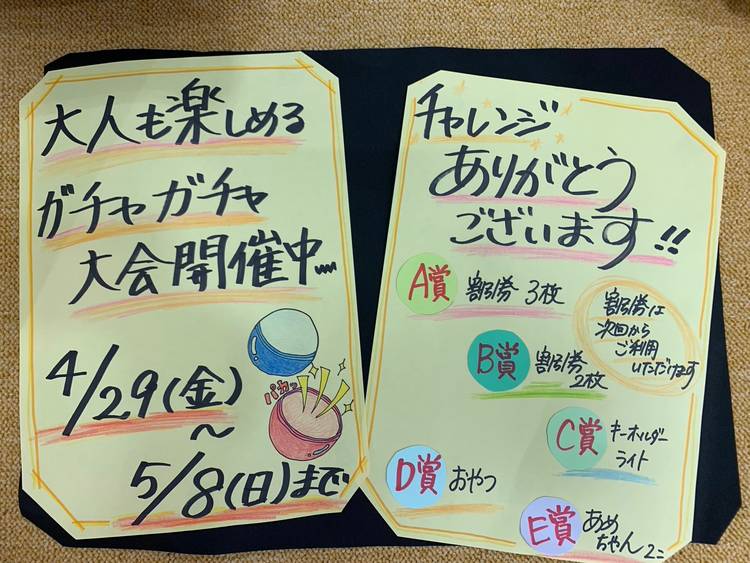 大人も楽しめる
ガチャガチャ
大会開催中
4/29(金)
～
5/8(日)まで
パカッ
チャレンジ
ありがとう
ございます!!
A賞 割引券 3枚
割引券は
次回から
ご利用
いただけます
B賞 割引券
2枚
C賞 キーホルダー
ライト
D賞 おやつ
E賞 あめ
ちゃん2コ